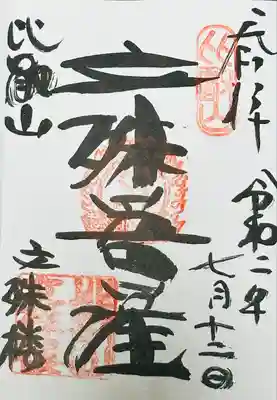 奉拝
令和二年
七月十二日
文殊菩薩
比叡山
文殊楼